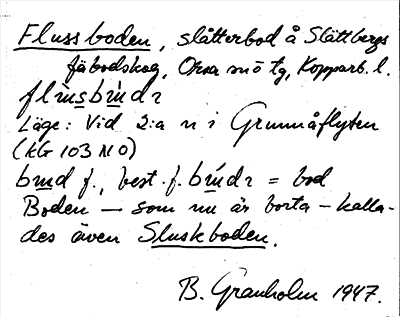 Flussboden, slåtterbod å Slättbergs
fäbodskog, Orsa snö tg, Kopparb. l.
Läge: Vid 2:a n i Grunnåflyten
(KG 103 NO)
f., best. f. = bod
Boden – som nu är borta – kalla-
des även Sluskboden.
B. Granholm 1947.